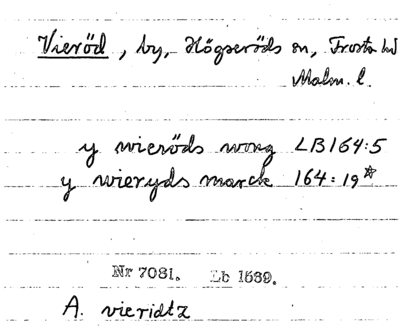 Vieröd, by, Högseröds sn, Frosta hd
Malm. l.
y wieröds wong LB164:5
y wieryds marck 164:19☆
Nr 7081. Lb 1639.
A. vieridtz